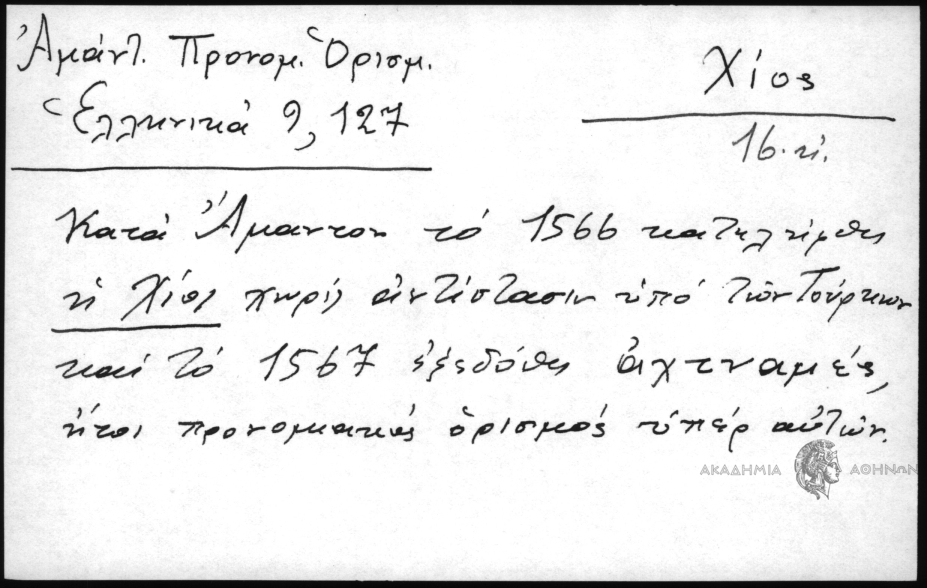 Ἀμάντ. Προνομ. Ὁρισμ.
Ἑλληνικά 9, 127
Χίος
16. αἰ.
Κατά Ἄμαντον τό 1566 κατελήφθη
ἡ Χίος χωρίς ἀντίστασιν ὑπό τῶν Τούρκων
καί τό 1567 ἐξεδόθη ἀχτναμές,
ἤτοι προνομιακός ὁρισμός ὑπέρ αὐτῶν.
ΑΚΑΔΗΜΙΑ ΑΘΗΝΩΝ